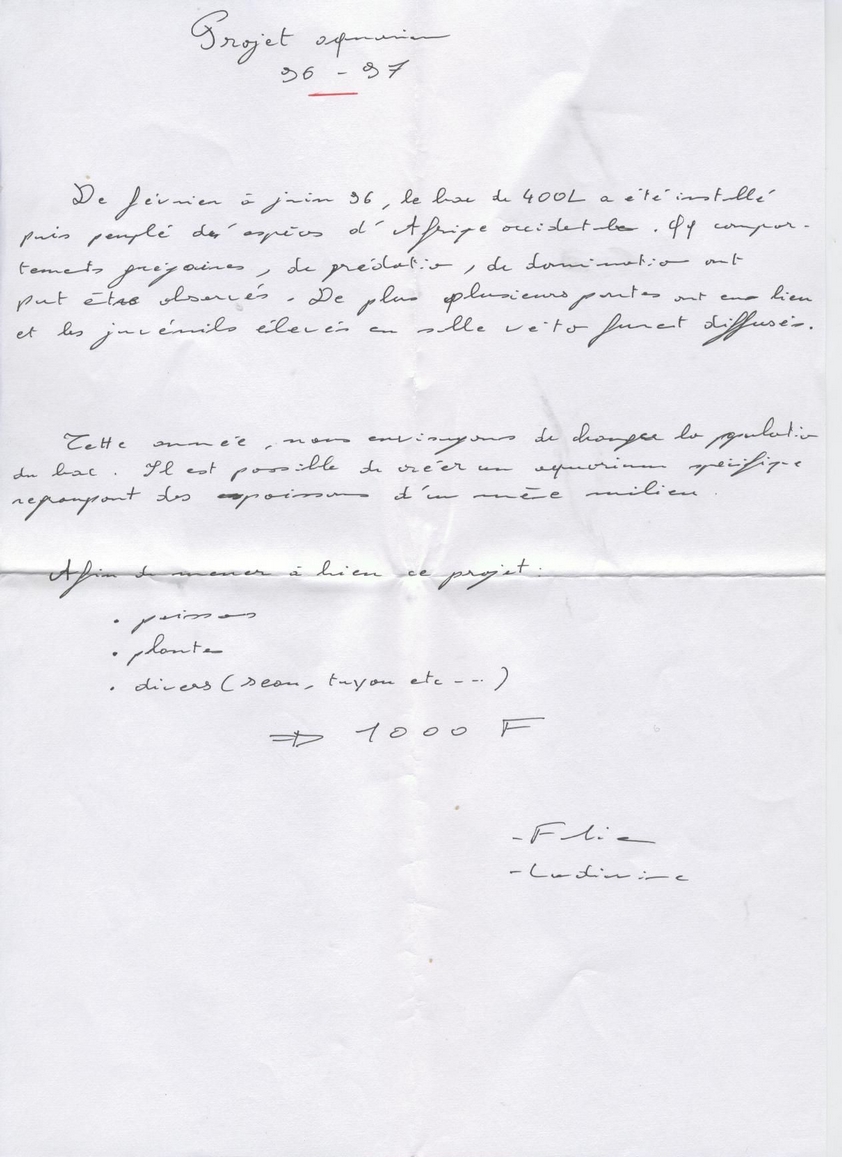 Projet aquarium
96 - 97
De février à juin 96, le bac de 400L a été installé
puis peuplé des espèces d'Afrique occidentale. Qq compor-
tements grégaires, de prédation, de domination ont
put être observés. De plus plusieurs pontes ont eu lieu
et les juvénils élevés en salle véto furent diffusés.
Cette année, nous envisageons de changer la population
du bac. Il est possible de créer un aquarium spécifique
regroupant des poissons d'un même milieu.
Afin de mener à bien ce projet :
• poissons
• plantes
• divers (seau, tuyau etc ---)
⇒ 1000 F
-
- Ludivine